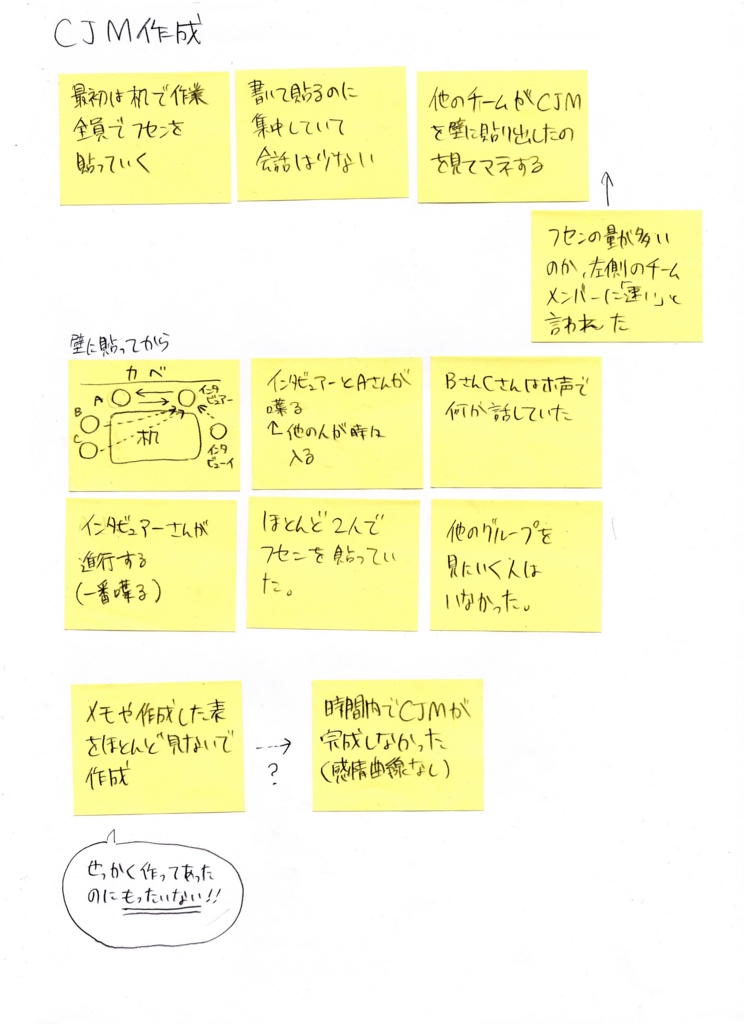 CJM作成
最初は机で作業
全員でフセンを
貼っていく
書いて貼るのに
集中していて
会話は少ない
他のチームがCJM
を壁に貼り出したの
を見てマネする
↑
フセンの量が多い
のか、左側のチーム
メンバーに「速い」と
言われた
壁に貼ってから
カベ
A
インタ
ビュアー
B
C
机
インタ
ビューイ
インタビュアーとAさんが
喋る
↑他の人が時は
入る
BさんCさんは小声で
何か話していた
インタビュアーさんが
進行する
(一番喋る)
ほとんど2人で
フセンを貼ってい
た。
他のグループを
見にいく人は
いなかった。
メモや作成した表
をほとんど見ないで
作成
→
?
時間内でCJMが
完成しなかった
(感情曲線なし)
せっかく作ってあった
のにもったいない!!